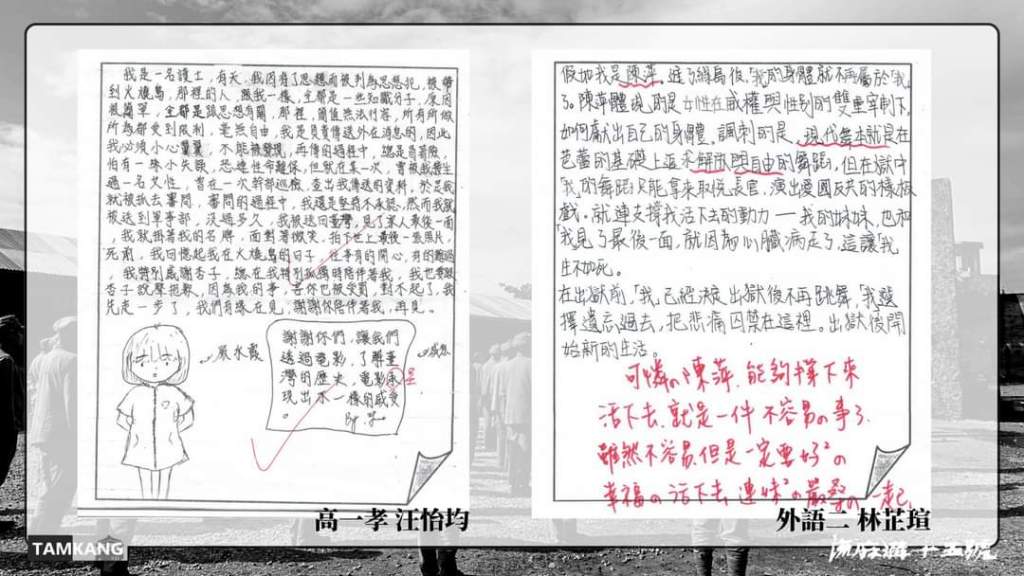 我是一名護士,有天,我因有了思想而被判為思想犯,被帶
到火燒島,那裡的人,跟我一樣,全都是一些知識分子,原因
很簡單,全都是跟思想有關,那裡,簡直無法行容,所有所做
所為都受到限制,毫無自由,我是負責傳送外在消息的,因此
我必須小心翼翼,不能被發現,再傳的過程中,總是冒著險
怕有一珠小失誤,恐連性命難保,但就在某一次,曾被威脅
過一名女性,當在一次幹部巡檢,查出我傳送的資料,於是我
就被抓去審問,審問的過程中,我還是堅持不承認,然而我就
被送到軍事部,沒過多久,我被送回臺灣,見了家人最後一面
,我就掛著我的名牌,面對著微笑,拍了世上最後一張照片,
死前,我回憶起我在火燒島的日子,在事有的開心,有的難過
,我特別感謝杏子,總在我特別孤獨時陪伴著我,我也要跟
杏子說聲抱歉,因為我的事,害你也被受責,對不起了,我
先走一步了,我們有緣在見,謝謝你陪伴著我,再見。
嚴水霞
謝謝你們,讓我們
透過電影,了解臺
灣的歷史,電影呈
現出不一樣的感受
。
By
感想
高一孝 汪怡均
假如我是陳萍,進了綠島後,「我」的身體就不再屬於「我」
了。陳萍體現的是女性在威權與性別的雙重宰制下,
如何獻出自己的身體。諷刺的是,現代舞本就是在
芭蕾的基礎上追求解放與自由的舞蹈,但在獄中
「我」的舞蹈只能拿來取悅長官,演出愛國反共的樣板
戲。就連支撐我活下去的動力——我的妹妹,也和
「我」見了最後一面,就因為心臟病走了,這讓「我」
生不如死。
在出獄前,「我」已經決定出獄後不再跳舞,「我」選
擇遺忘過去,把悲痛囚禁在這裡。出獄後開
始新的生活。
可憐の陳萍,能夠撐下來
活下去,就是一件不容易の事了.
雖然不容易,但是一定要好好の
幸福の活下去,連妹妹の嚴桑の一起
外語二 林芷瑄
TAMKANG
流麻溝十五號